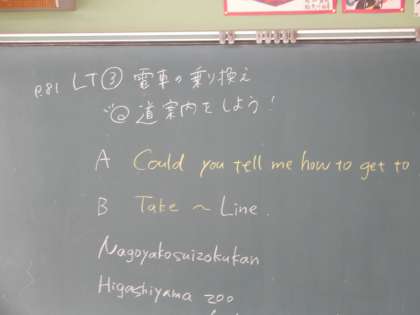 p.81 LT③ 電車の乗り換え
道案内をしよう!
A Could you tell me how to get to
B Take ~ Line.
Nagoyakosuizokukan
Higashiyama zoo